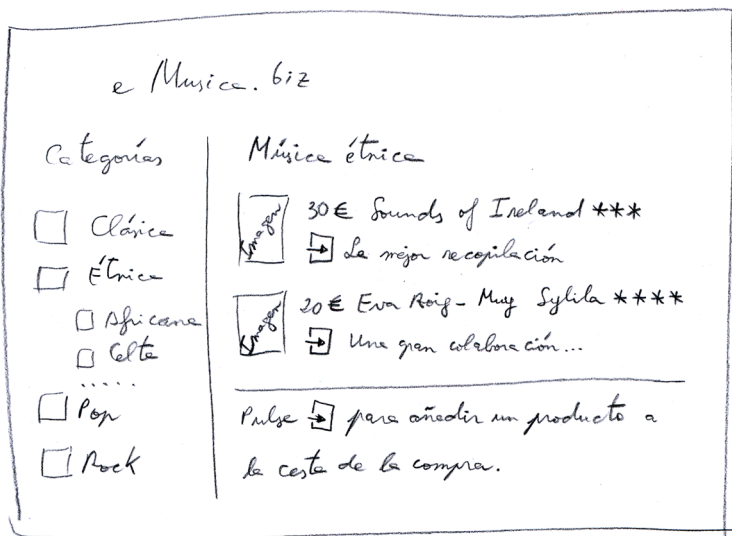 e Musica.biz
Categorías
Clásica
Étnica
Africana
Celta
.....
Pop
Rock
Música étnica
Imagen
30€ Sounds of Ireland ***
La mejor recopilación
Imagen
20€ Eva Roig - Muy Sylila ****
Una gran colaboración...
Pulse para añadir un producto a
la cesta de la compra.